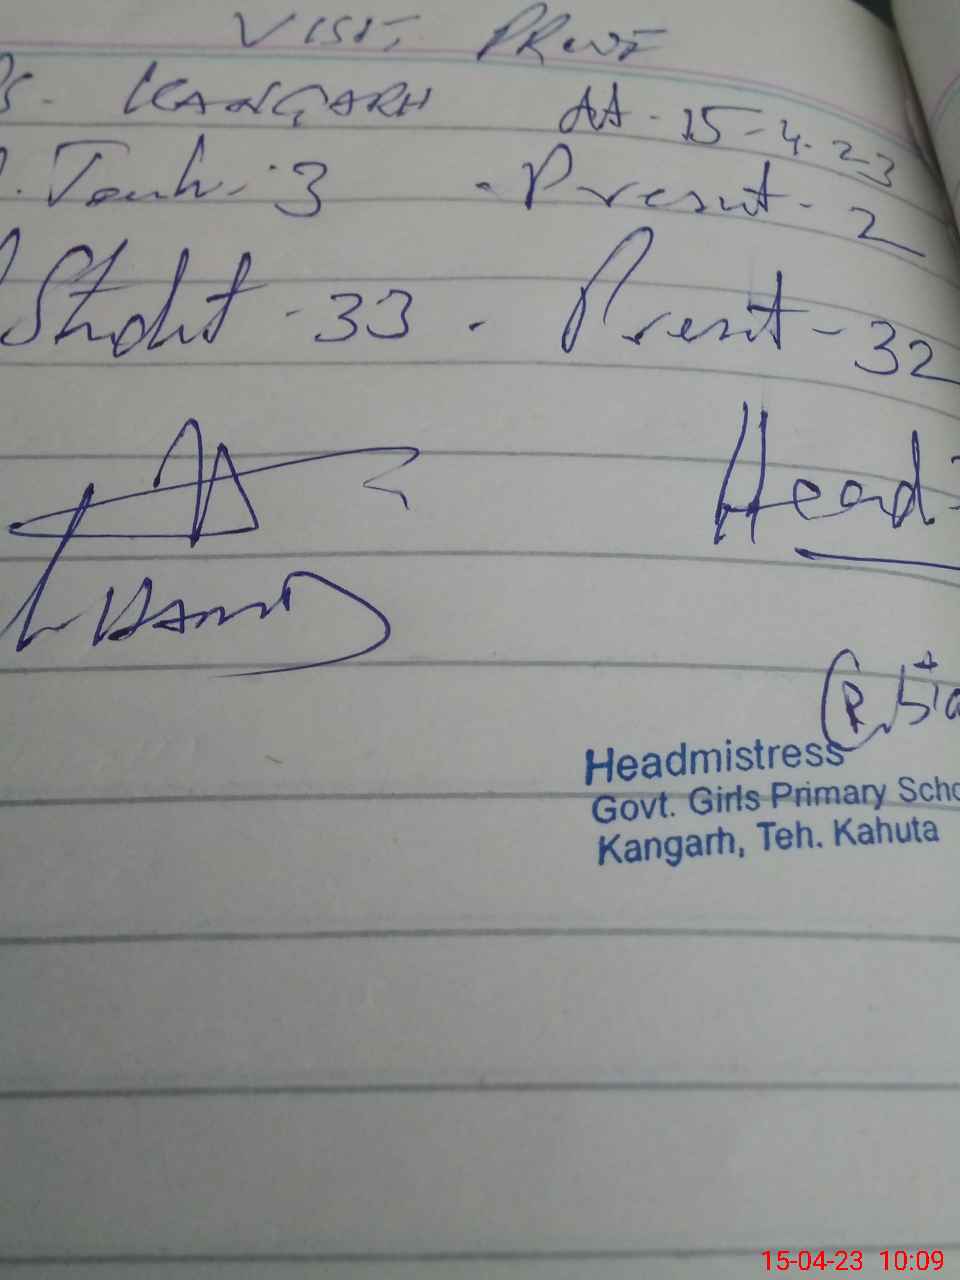 VISIT PROOF
S. KANGARH AA - 15-4-23
. Teach - 3 - Present - 2
Student - 33 - Present - 32
Head
Headmistress
Govt. Girls Primary Scho
Kangarh, Teh. Kahuta
15-04-23 10:09